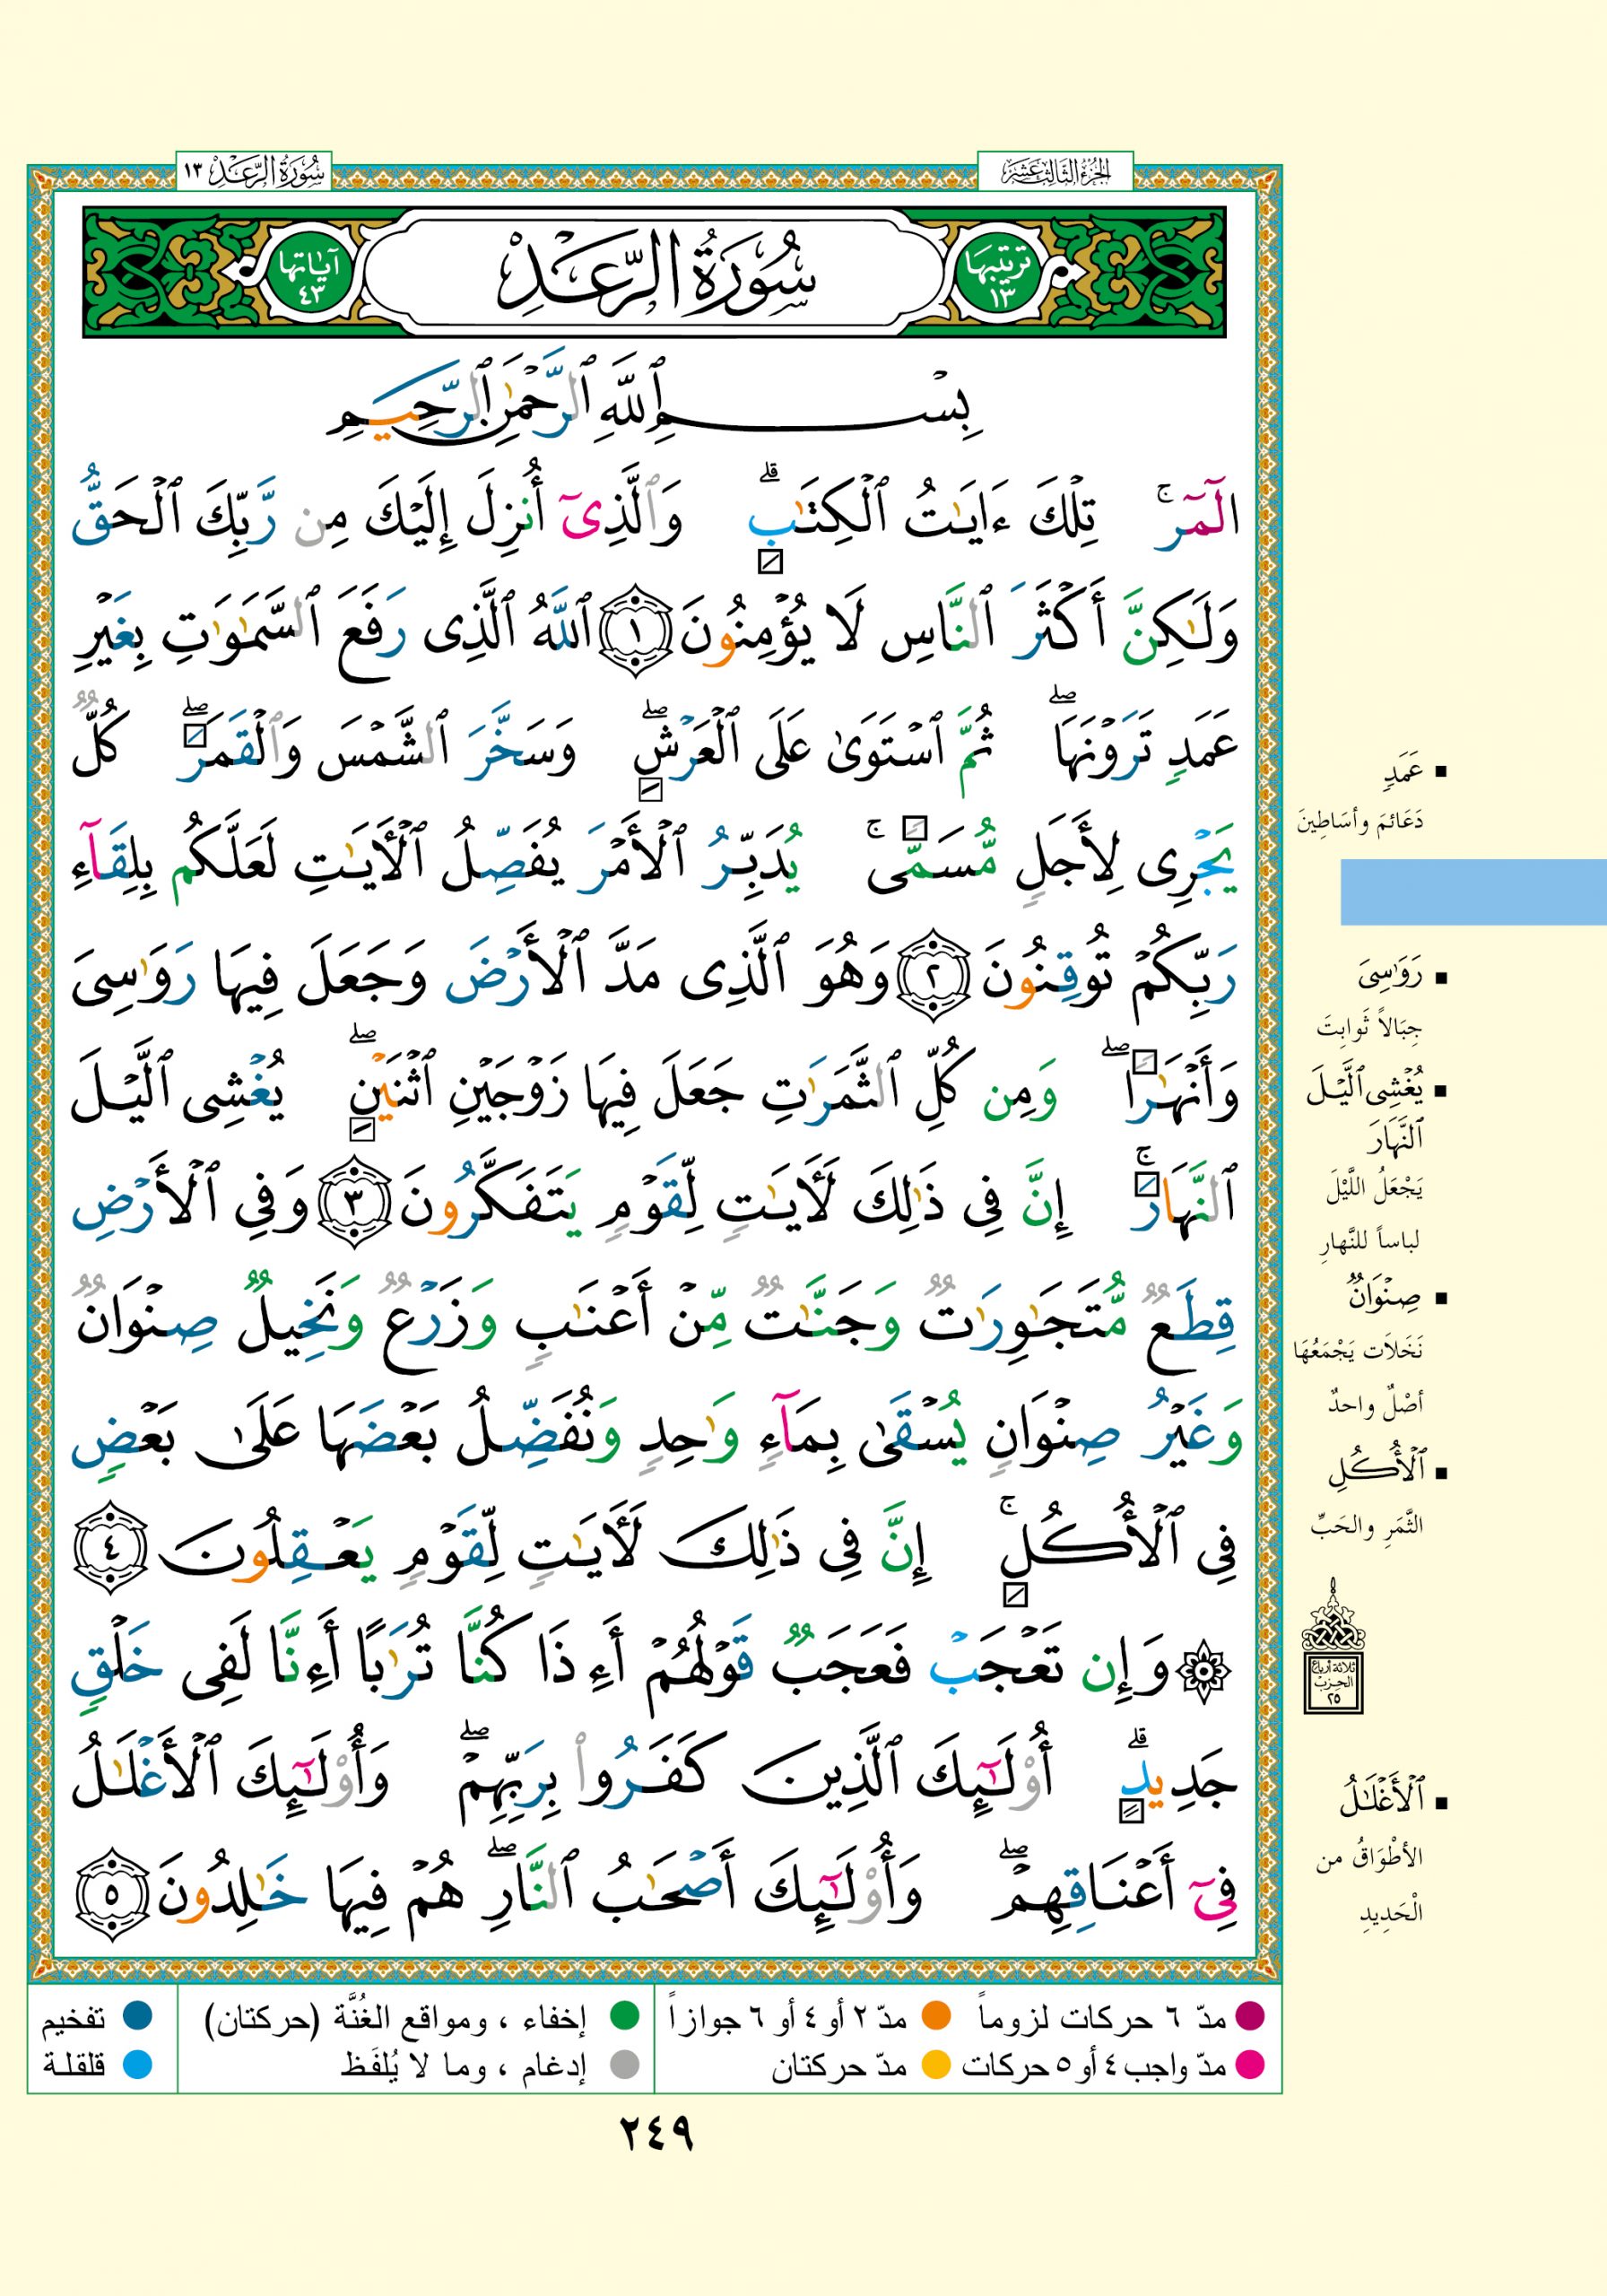 الجزء الثالث عشر
سُورَةُ الرَّعْدِ ١٣
ترتيبها ١٣
سُورَةُ الرَّعْدِ
آياتها ٤٣
بِسْمِ ٱللَّهِ ٱلرَّحْمَٰنِ ٱلرَّحِيمِ
الٓمٓر ۚ تِلْكَ ءَايَٰتُ ٱلْكِتَٰبِ ۗ وَٱلَّذِىٓ أُنزِلَ إِلَيْكَ مِن رَّبِّكَ ٱلْحَقُّ
وَلَٰكِنَّ أَكْثَرَ ٱلنَّاسِ لَا يُؤْمِنُونَ ١ ٱللَّهُ ٱلَّذِى رَفَعَ ٱلسَّمَٰوَٰتِ بِغَيْرِ
عَمَدٍ تَرَوْنَهَا ۖ ثُمَّ ٱسْتَوَىٰ عَلَى ٱلْعَرْشِ ۖ وَسَخَّرَ ٱلشَّمْسَ وَٱلْقَمَرَ ۖ كُلٌّ
يَجْرِى لِأَجَلٍ مُّسَمًّى ۚ يُدَبِّرُ ٱلْأَمْرَ يُفَصِّلُ ٱلْءَايَٰتِ لَعَلَّكُم بِلِقَآءِ
رَبِّكُمْ تُوقِنُونَ ٢ وَهُوَ ٱلَّذِى مَدَّ ٱلْأَرْضَ وَجَعَلَ فِيهَا رَوَٰسِىَ
وَأَنْهَٰرًا ۖ وَمِن كُلِّ ٱلثَّمَرَٰتِ جَعَلَ فِيهَا زَوْجَيْنِ ٱثْنَيْنِ ۖ يُغْشِى ٱلَّيْلَ
ٱلنَّهَارَ ۚ إِنَّ فِى ذَٰلِكَ لَءَايَٰتٍ لِّقَوْمٍ يَتَفَكَّرُونَ ٣ وَفِى ٱلْأَرْضِ
قِطَعٌ مُّتَجَٰوِرَٰتٌ وَجَنَّٰتٌ مِّنْ أَعْنَٰبٍ وَزَرْعٌ وَنَخِيلٌ صِنْوَانٌ
وَغَيْرُ صِنْوَانٍ يُسْقَىٰ بِمَآءٍ وَٰحِدٍ وَنُفَضِّلُ بَعْضَهَا عَلَىٰ بَعْضٍ
فِى ٱلْأُكُلِ ۚ إِنَّ فِى ذَٰلِكَ لَءَايَٰتٍ لِّقَوْمٍ يَعْقِلُونَ ٤
۞ وَإِن تَعْجَبْ فَعَجَبٌ قَوْلُهُمْ أَءِذَا كُنَّا تُرَٰبًا أَءِنَّا لَفِى خَلْقٍ
جَدِيدٍ ۗ أُو۟لَٰٓئِكَ ٱلَّذِينَ كَفَرُوا۟ بِرَبِّهِمْ ۖ وَأُو۟لَٰٓئِكَ ٱلْأَغْلَٰلُ
فِىٓ أَعْنَاقِهِمْ ۖ وَأُو۟لَٰٓئِكَ أَصْحَٰبُ ٱلنَّارِ ۖ هُمْ فِيهَا خَٰلِدُونَ ٥
▪ عَمَدٍ
دَعَائمَ وأسَاطِينَ
▪ رَوَٰسِىَ
جِبَالاً ثَوابِتَ
▪ يُغْشِى ٱلَّيْلَ
ٱلنَّهَارَ
يَجْعَلُ اللَّيْلَ
لباساً للنَّهارِ
▪ صِنْوَانٌ
نَخَلَات يَجْمَعُهَا
أصْلٌ واحدٌ
▪ ٱلْأُكُلِ
الثَّمَرِ والحَبِّ
ثلاثة أرباع
الحزب
٢٥
▪ ٱلْأَغْلَٰلُ
الأطْوَاقُ من
الْحَدِيدِ
مدّ ٦ حركات لزوماً ● مدّ ٢ أو ٤ أو ٦ جوازاً ● إخفاء ، ومواقع الغُنَّة (حركتان) ● تفخيم
مدّ واجب ٤ أو ٥ حركات ● مدّ حركتان ● إدغام ، وما لا يُلفَظ ● قلقلة
٢٤٩